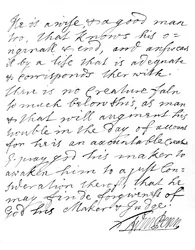 He is a wise & a good man
too, that knows his o-
riginall & end, and answers
it by a life that is adequate
& corresponds therwith.
There is no Creature fallen
so much below this, as man
& that will augment his
trouble in the day of account
for he is an accountable Creature
I pray god his maker to
awaken him to a just Con-
sideration thereof, that he
may finde forgiveness of
god his Maker & Judge.
Wm Penn